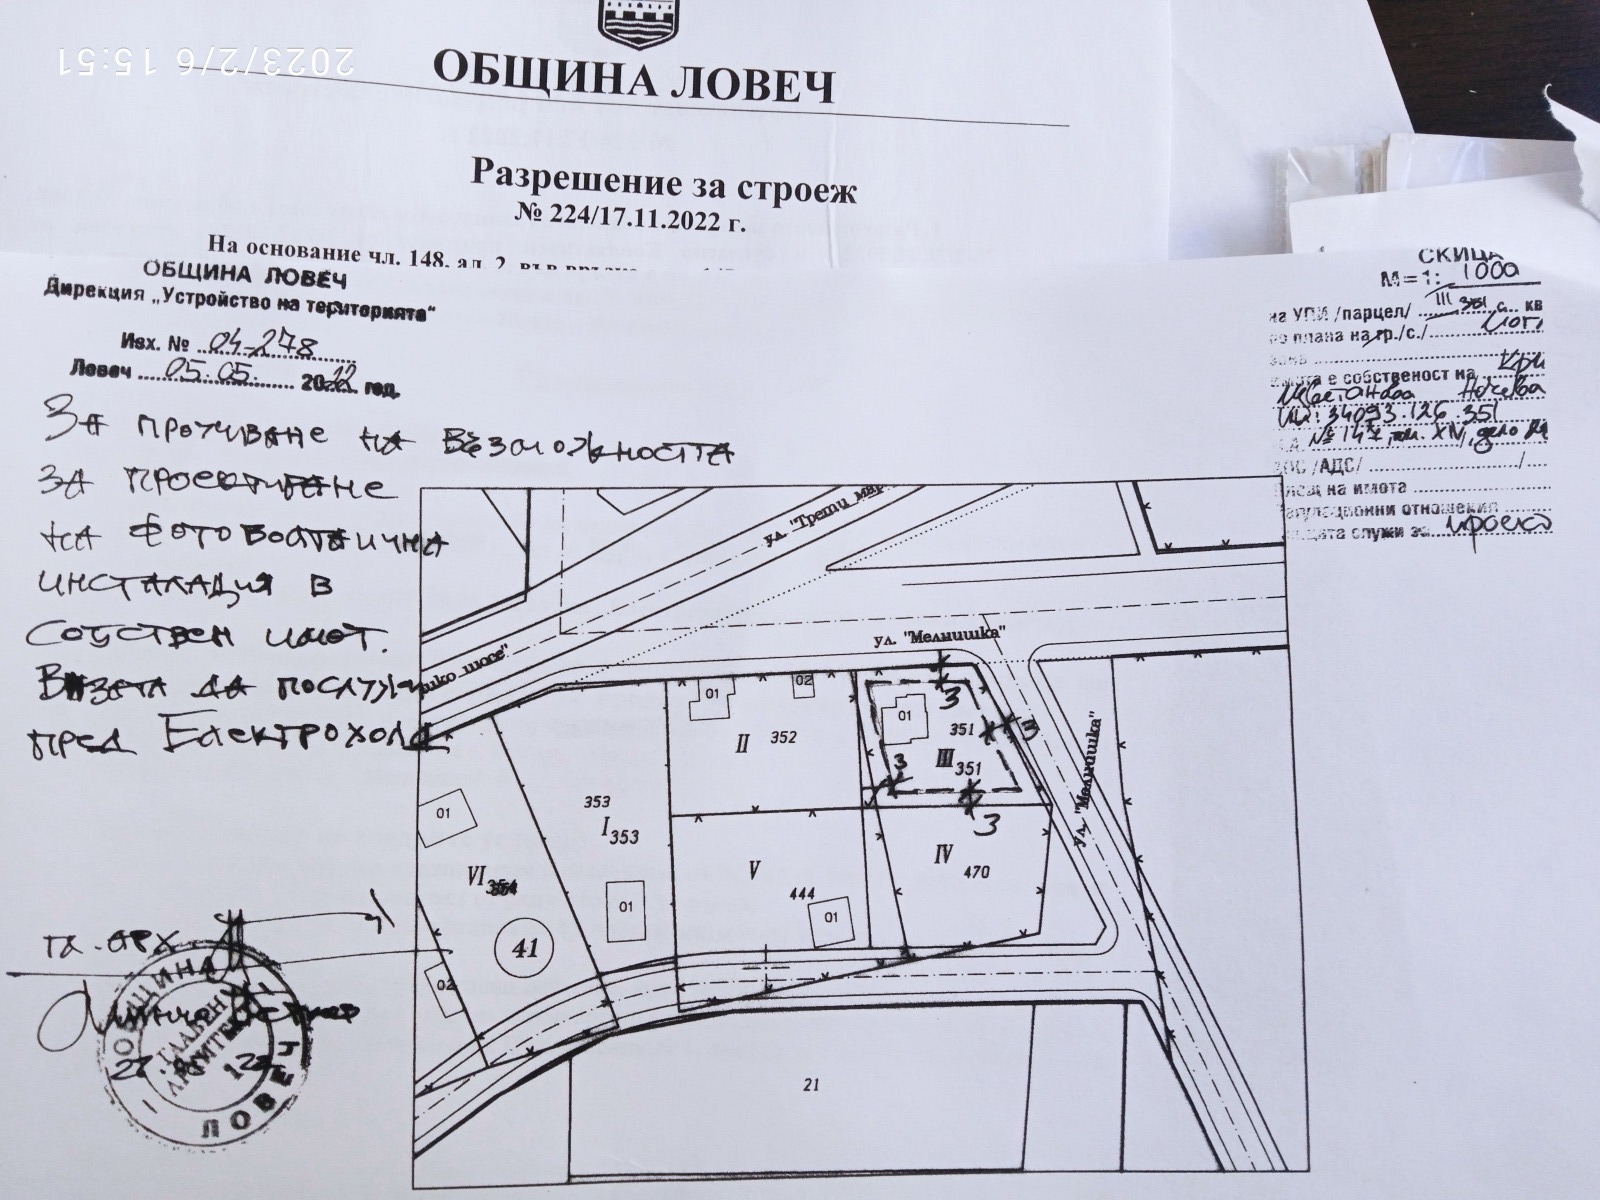 2023/2/6 15:51
ОБЩИНА ЛОВЕЧ
Разрешение за строеж
№ 224/17.11.2022 г.
На основание чл. 148, ал. 2, във
ОБЩИНА ЛОВЕЧ
Дирекция „Устройство на територията"
Изх. № 04-278
Ловеч 05.05. 2022 год.
За проучване на възможността
за проектиране
на фотоволтаична
инсталация в
собствен имот.
Визата да послужи
пред Електрохолд
гл. арх
ОБЩИНА
ГЛАВЕН
АРХИТЕКТ
ЛОВЕЧ
СКИЦА
М=1: 1000
на УПИ /парцел/ III 351 кв
по плана на гр./с./
имота е собственост на
Цветанова Ночева
34093.126.351
№ 147, том. XIV, дело
/АДС/
площ на имота
Регулационни отношения
служи за проект
ул. "Трети мар
шко шосе"
ул. "Мелнишка"
ул. "Мелнишка"
01
02
01
II 352
351
III 351
3
3
3
3
353
I 353
01
VI 354
01
V
444
01
IV
470
41
02
21